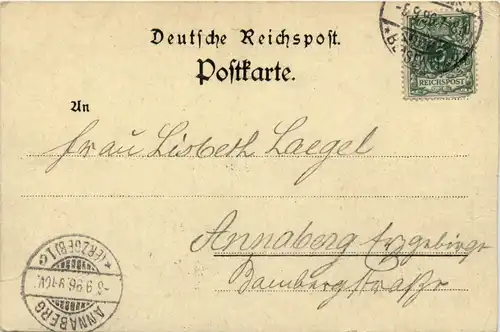 Deutsche Reichspost.
Postkarte.
An
Frau Lisbeth Laegel
Annaberg Erzgebirge
Bambergstraße
REICHSPOST
ANNABERG
(ERZGEB)